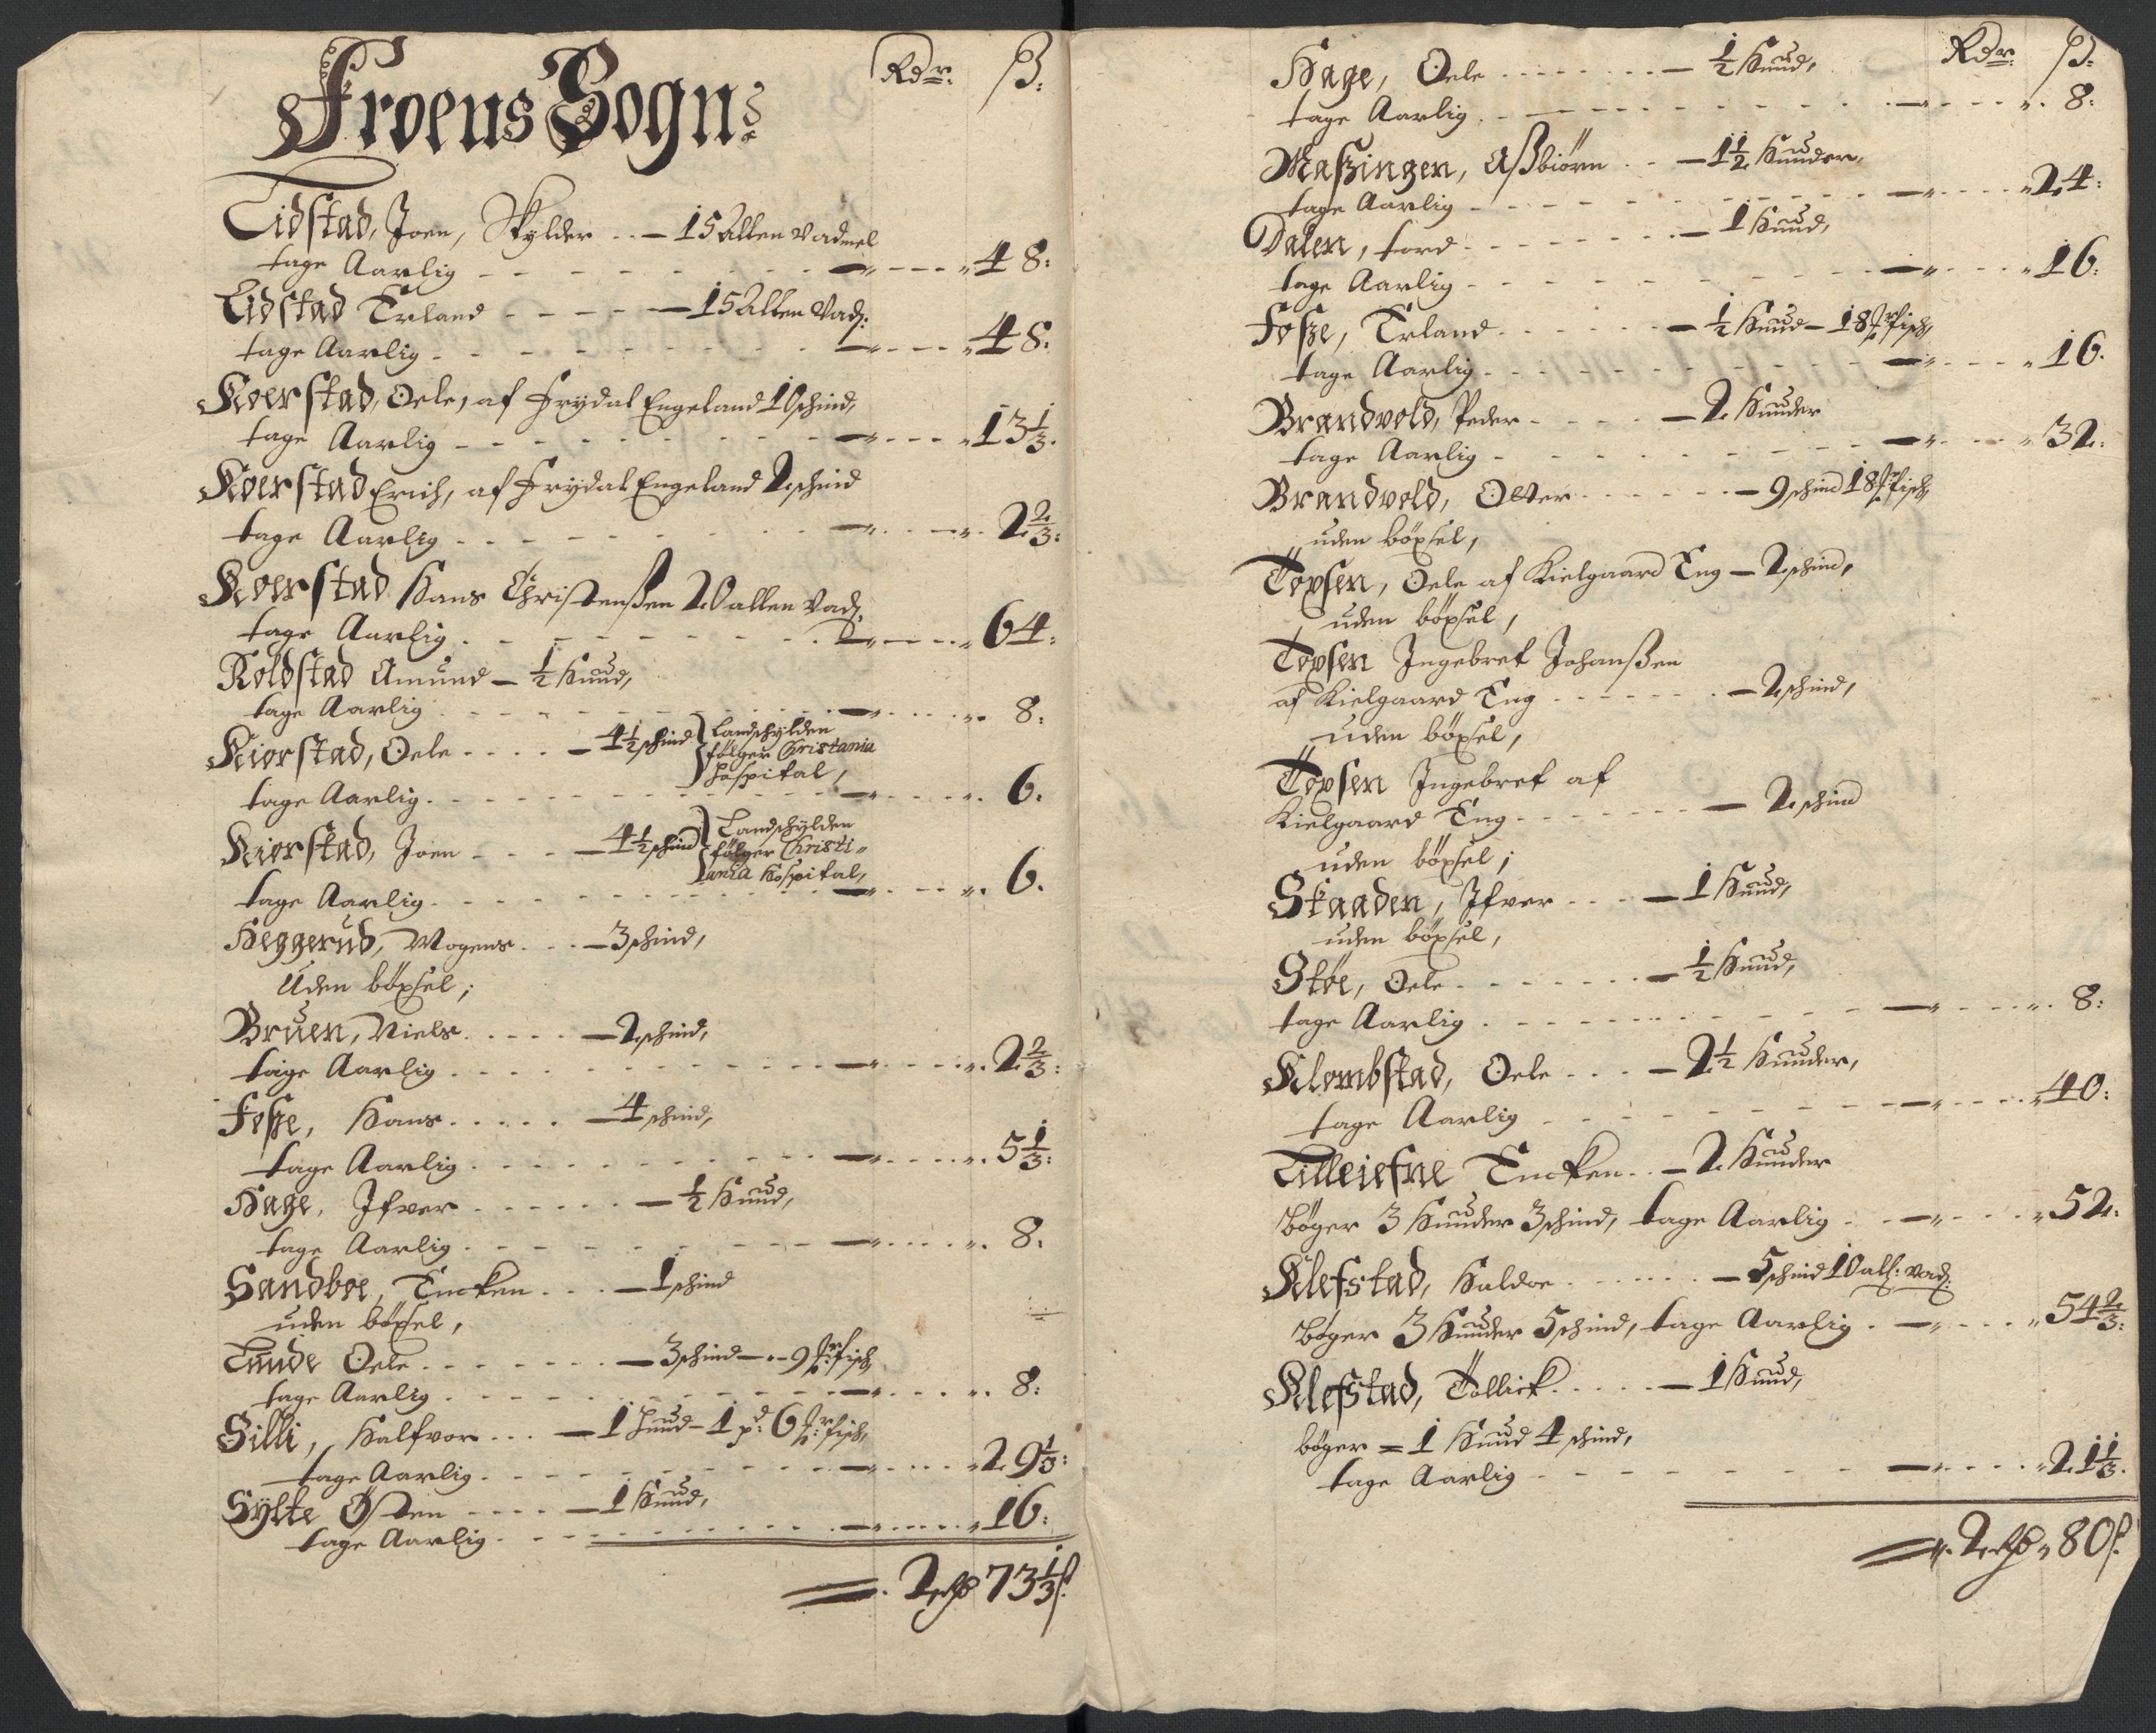 Froens Sogn:
Rdr: ß:
Lidstad, Joen, Skylder .. — 15 Allen Vadmel
tage Aarlig - - - 48:
Lidstad Erland - - - — 15 Allen Vad:
tage Aarlig - - - 48:
Koerstad, Oele, af Frydal Engeland 10 schind,
tage Aarlig - - - 13 1/3.
Koerstad Erich, af Frydal Engeland 2 schind
tage Aarlig - - - 2 2/3:
Koerstad Hans Christenßen 20 allen Vad:
tage Aarlig - - - 64:
Roldstad Amund — 1/2 Huud,
tage Aarlig - - - 8:
Kiorstad, Oele .... — 4 1/2 schind } Landschylden
følger Christania
Hospital,
tage Aarlig - - - 6.
Kiorstad, Joen - - — 4 1/2 schind } Landschylden
følger Christi-
ania Hospital,
tage Aarlig - - - 6.
Heggerud, Mogens ... — 3 schind,
Uden böxsel;
Bruen, Niels .... — 2 schind,
tage Aarlig - - - 2 2/3:
Foße, Hans ..... — 4 schind,
tage Aarlig - - - 5 1/3:
Hage, Ifver ..... — 1/2 Huud,
tage Aarlig - - - 8.
Sandboe, Encken ... — 1 schind
uden böxsel,
Tunde Oele ...... — 3 schind — 9 fisch
tage Aarlig - - - 8:
Silli, Halfvor ... — 1 Huud — 1 pd: 6 fisch,
tage Aarlig - - - 29 1/3:
Sylte Østen .... — 1 Huud,
tage Aarlig - - - 16:
2 rd 73 1/3 ß.
Rdr: ß:
Hage, Oele ...... — 1/2 Huud,
tage Aarlig - - - 8:
Maßingen, Aßbiörn .. — 1 1/2 Huuder,
tage Aarlig - - - 24:
Dalen, tord ...... — 1 Huud,
tage Aarlig - - - 16:
Foße, Erland ...... — 1/2 Huud — 18 fisch,
tage Aarlig - - - 16.
Brandvold, Peder - - - — 2 Huuder
tage Aarlig - - - 32:
Brandvold, Olter ...... — 9 schind 18 fisch
uden böxsel,
Töxsen, Oele af Kielgaard Eng — 2 schind,
uden böxsel,
Töxsen Ingebret Johanßen
af Kielgaard Eng ..... — 2 schind,
uden böxsel,
Töxsen Ingebret af
Kielgaard Eng ...... — 2 schind
uden böxsel;
Skaaden, Ifver ... — 1 Huud,
uden böxsel,
Støe, Oele ...... — 1/2 Huud,
tage Aarlig - - - 8:
Klombstad, Oele ... — 2 1/2 Huuder,
tage Aarlig - - - 40:
Tilleiefne Encken .. — 2 Huuder
böger 3 Huuder 3 schind, tage Aarlig - - - 52:
Klefstad, Haldor ...... — 5 schind 10 all: vad:
böger 3 Huuder 5 schind, tage Aarlig - - - 54 2/3:
Klefstad, Töllick .... — 1 Huud,
böger = 1 Huud 4 schind,
tage Aarlig - - - 21 1/3.
2 rd 80 ß.